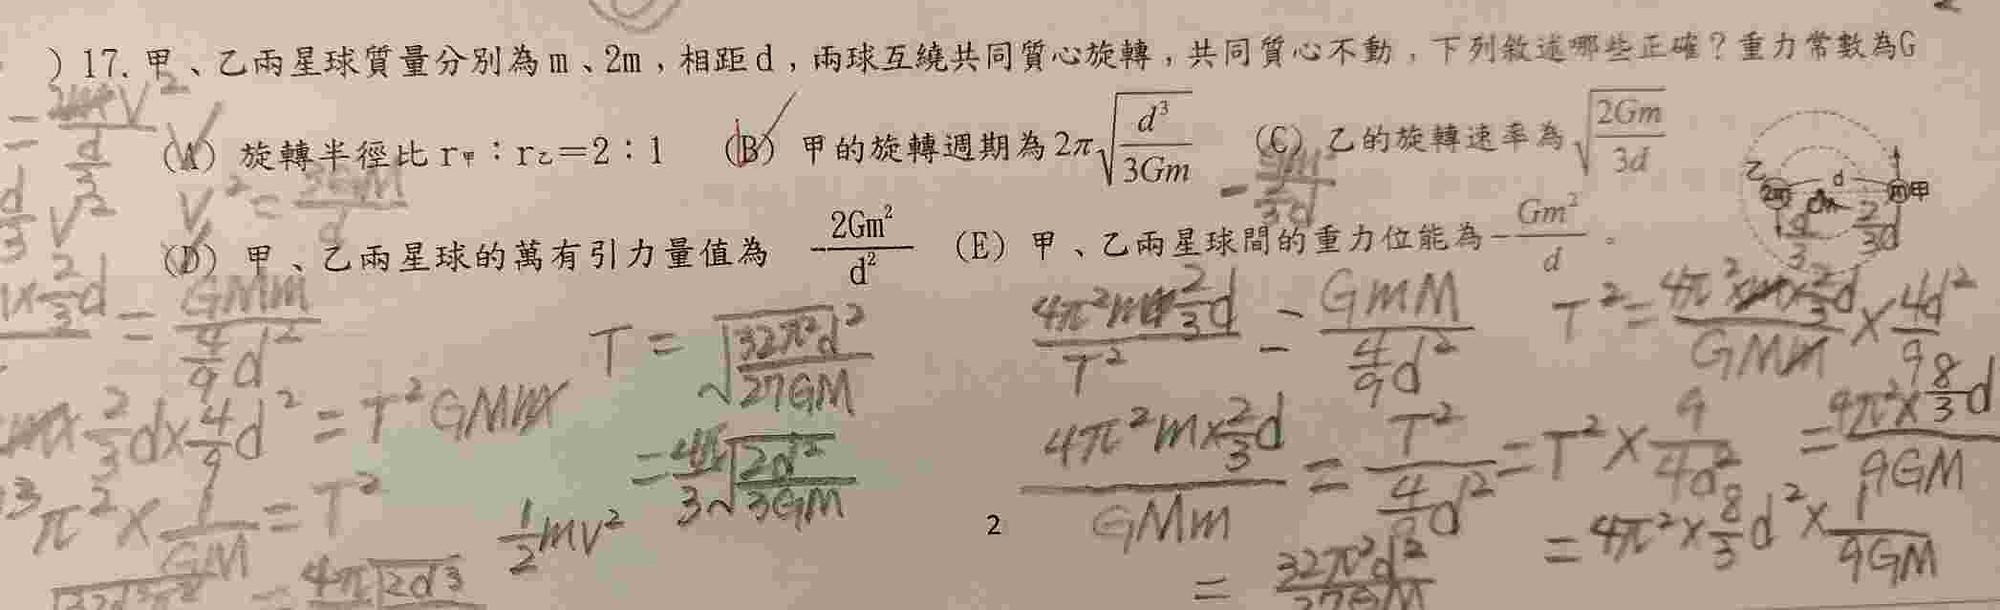 ) 17. 甲、乙兩星球質量分別為m、2m，相距d，兩球互繞共同質心旋轉，共同質心不動，下列敘述哪些正確？重力常數為G
(A) 旋轉半徑比 r甲：r乙＝2：1 (B) 甲的旋轉週期為 2π√(d³/3Gm) (C) 乙的旋轉速率為 √(2Gm/3d)
(D) 甲、乙兩星球的萬有引力量值為 -2Gm²/d² (E) 甲、乙兩星球間的重力位能為 -Gm²/d。
乙 2m d m 甲
d/3 2/3d
V² = 3GM/d
d/3 V²
x 2/3d = GMm / 4/9d²
x 2/3d x 4/9d² = T²GMm
π² x 1/GM = T²
T = √(32π²d²/27GM)
= 4π/3 √(2d²/3GM)
1/2mv²
4π²m 2/3d / T² = GmM / 4/9d²
4π²m x 2/3d / GMm = T² / 4/9d² = T² x 9/4d²
= 32π²d²/27GM
T² = 4π² x m x 2/3d / GMm x 4d²/9
= 4π² x 8/3d / 9GM
= 4π² x 8/3 d² x 1/9GM
2